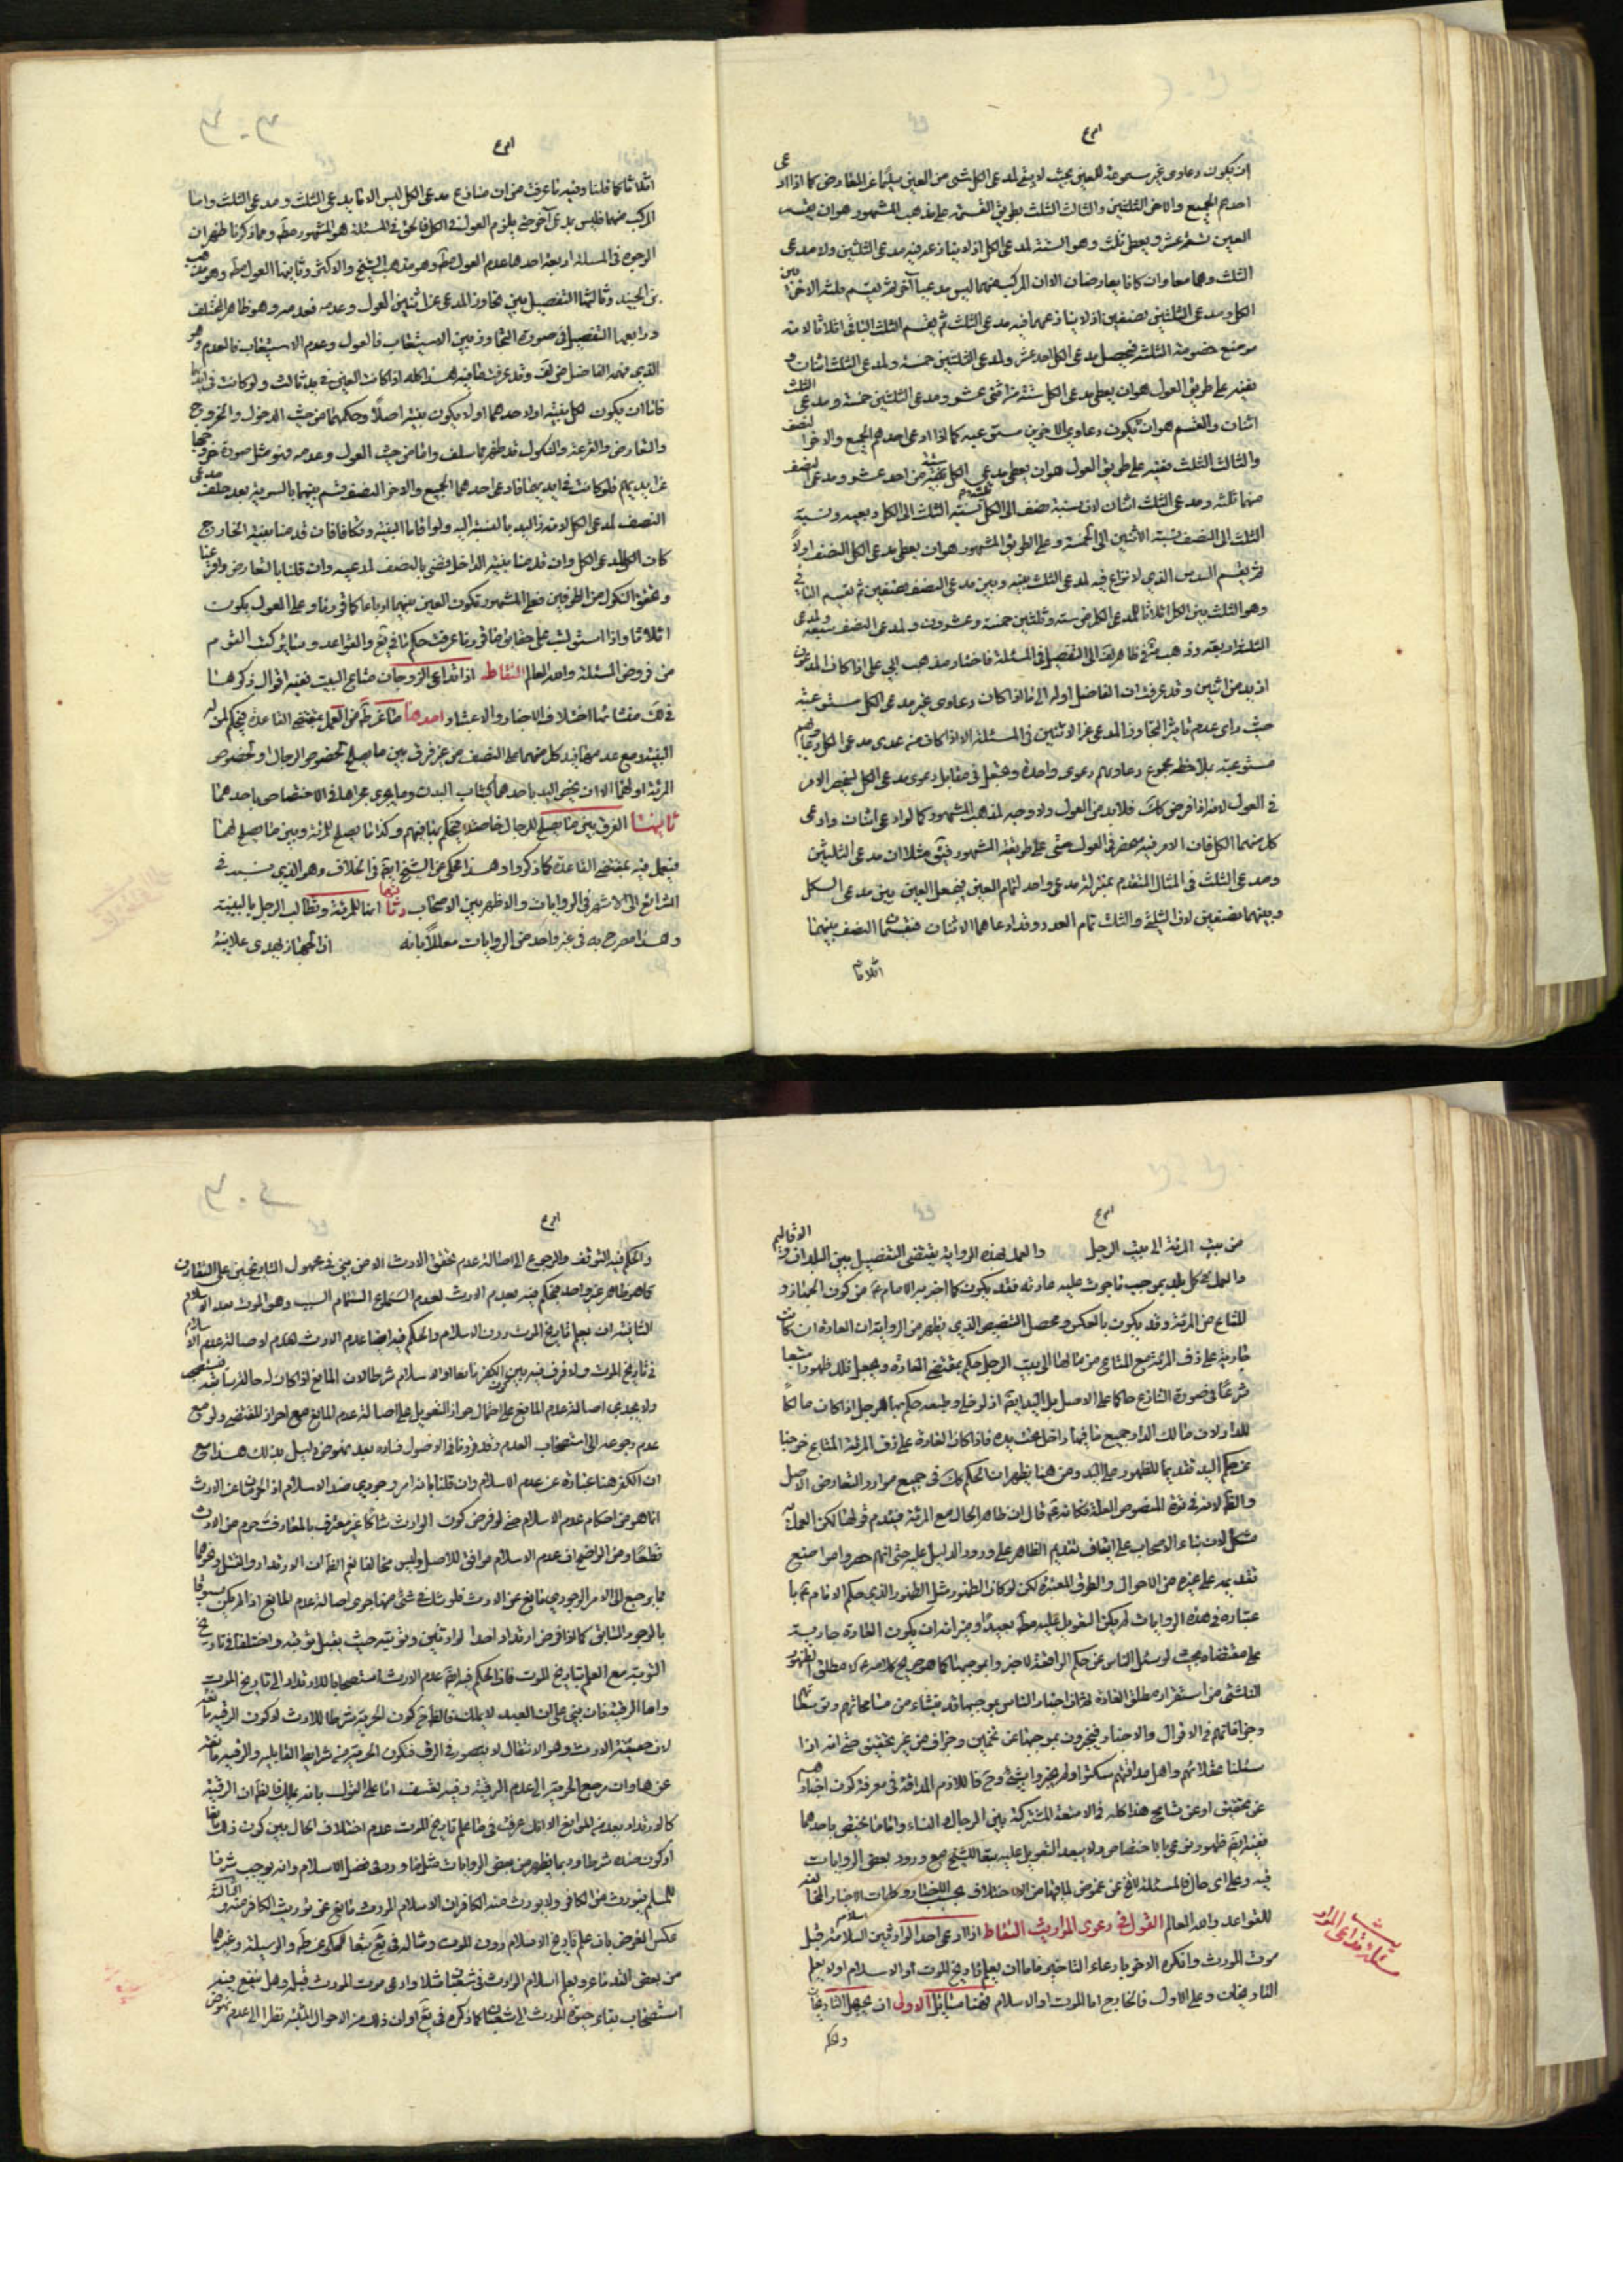 ان يكون دعاوى غير مستوعبة للعين بحيث لا يبقى لمدعى الكل شئ من العين سليما عن المعارض كما اذا ادعى
احدهم الجميع والاخر الثلثين والثالث الثلث بطريق القسمة على مذهب المشهور هو ان يقسم
العين تسعة عشر ويعطى ثلث وهو الستة لمدعى الكل اذ لا ينازعه فيه مدعى الثلثين ولا مدعى
الثلث وهما معا وان كانا يعارضان الا ان المركب منهما ليس مدعيا آخر ثم يقسم ثلثه الاخر بين
الكل ومدعى الثلثين نصفين اذ لا ينازعهما فيه مدعى الثلث ثم يقسم الثلث الباقى اثلاثا لانه
موضع خصومة الثلثة فيحصل لمدعى الكل احد عشر ولمدعى الثلثين خمسة ولمدعى الثلث اثنان
يقسم على طريق العول هو ان يعطى مدعى الكل ستة من اثنى عشر ومدعى الثلثين خمسة ومدعى الثلث
اثنان والقسم هو ان يكون دعاوى الاخرين مستوعبة كما اذا ادعى احدهم الجميع والاخر النصف
والثالث الثلث يقسم على طريق العول هو ان يعطى مدعى الكل ستة من احد عشر ومدعى النصف
منهما ثلثة ومدعى الثلث اثنان لان نسبة نصف الى الكل نسبة الثلث الى الكل ونسبة
الثلث الى النصف نسبة الاثنين الى الثلثة وعلى الطريق المشهور هو ان يعطى مدعى الكل النصف اولا
ثم يقسم السدس الذى لا نزاع فيه لمدعى الثلث بينه وبين مدعى النصف نصفين ثم يقسم الباقى
وهو الثلث بين الكل اثلاثا لمدعى الكل من ستة وثلثين خمسة وعشرون ولمدعى النصف سبعة ولمدعى
الثلث اربعة وذهب فى ظاهر لف الى التفصيل فى المسئلة فاختار مذهب ابى على اذا كان المدعون
ازيد من اثنين وقد عرفت ان الفاضل اوله الى ما اذا كان دعاوى غير مدعى الكل مستوعبة
حيث راى عدم تاثير التجاوز المدعى عن الاثنين فى المسئلة الا اذا كان من عدى مدعى الكل دعاويهم
مستوعبة بملاحظة مجموع دعاويهم دعوى واحدة وتجعل فى مقابل دعوى مدعى الكل لينحصر الامر
فى العول لانه اذا فرض كك فلا بد من العول ولا وجه لمذهب المشهور كما لو ادعى اثنان وادعى
كل منهما الكل فان الامر فيه منحصر فى العول حتى على طريقة المشهور فيبقى مثلا ان مدعى الثلثين
ومدعى الثلث فى المثال المتقدم بمنزلة مدعى واحد لتمام العين فيجعل العين بين مدعى الكل
وبينهما نصفين لان الثلثين والثلث تمام العدد وقد ادعاهما الاثنان فيقسم النصف بينهما
اثلاثا
اثلاثا كما قلنا وفيه ما عرفت من ان منازع مدعى الكل ليس الا مدعى الثلث ومدعى الثلث واما
المركب منهما فليس مدعى آخر حتى يلزم العول فى الكل فالحق فى المسئلة هو المشهور مط ومما ذكرنا ظهر ان
الوجوه فى المسئلة اربعة احدها عدم العول مط وهو مذهب الشيخ والاكثر وثانيها العول مط وهو مذهب
بن الجنيد وثالثها التفصيل بين تجاوز المدعى عن اثنين فالعول وعدمه فعدمه وهو ظاهر المختلف
ورابعها التفصيل فى صورة التجاوز بين الاستيعاب فالعول وعدم الاستيعاب فالعدم وهو
الذى فهمه الفاضل من لف وقد عرفت ما فيه هذا كله اذا كانت العين فى يد ثالث ولو كانت فى ايديهما
فاما ان يكون لكل بينة او لاحدهما او لا يكون بينة اصلا وحكمهما من حيث الدخول والخروج
والتعارض والقرعة والنكول قد ظهر مما سلف واما من حيث العول وعدمه فهو مثل صورة خروجها
عن ايديهم فلو كانت فى ايديهما فادعى احدهما الجميع والاخر النصف قسم بينهما بالسوية بعد حلف مدعى
النصف لمدعى الكل لانه ذا اليد بالنسبة اليه ولو اقاما البينة وتكافاتا فان قدمنا بينة الخارج
كان الكل لمدعى الكل وان قدمنا بينة الداخل قضى بالنصف لمدعيه وان قلنا بالتعارض واقرعنا
وتحقق النكول من الطرفين فعلى المشهور تكون العين بينهما ارباعا كما قررنا وعلى العول يكون
اثلاثا واذا استوليت على حقايق ما قررنا عرفت حكم ما فى يع والقواعد وساير كتب القوم
من فروض المسئلة والله العالم التقاط اذا تداعى الزوجان متاع البيت ففيه اقوال ذكرها
فى لك منشائها اختلاف الاخبار والاعتبار احدها ما عن ط من العمل بمقتضى القاعدة فيحكم لمن له
البينة ومع عدمها فيد كل منهما على النصف من غير فرق بين ما يصلح لخصوص الرجال او لخصوص
المرئة او لهما الا ان يختص اليد باحدهما كثياب البدن وما يجرى مجراها فى الاختصاص باحدهما
ثانيها الفرق بين ما يصلح للرجال خاصة فيحكم بها فيهم وكذا ما يصلح للمرئة وبين ما يصلح لهما
فيعمل فيه بمقتضى القاعدة كما ذكر وهذا محكى عن الشيخ ايض فى الخلاف وهو الذى نسبه فى
الشرائع الى الاشهر فى الروايات والاظهر بين الاصحاب وثالثها انها للمرئة ويطالب الرجل بالبينة
وهذا مصرح به فى غير واحد من الروايات معللا بانه اذا الجهاز يهدى علانية
من بيت المرئة الى بيت الرجل والعمل بهذه الرواية يقتضى التفصيل بين البلدان والاقاليم
والعمل فى كل بلد بموجب ما جرت عليه عادته فقد يكون كما اخبر به الامام ع من كون الجهاز و
المتاع من المرئة وقد يكون بالعكس ومحصل التفصيل الذى يظهر من الرواية ان العادة ان كانت
جارية على زف المرئة مع المتاع من مالها الى بيت الرجل حكم بمقتضى العادة ويجعل ذلك ظهورا متبعا
شرعا فى صورة التنازع حاكما على الاصل بل اليد ايض اذ لو خلى وطبعه حكم بها للرجل اذا كان مالكا
للدار لان مالك الدار جميع ما فيها داخل تحت يده فاذا كان العادة على زف المرئة المتاع خرجنا
عن حكم اليد تقديما للظهور على اليد ومن هنا يظهر ان الحكم كك فى جميع موارد التعارض الاصل
والظ لانه فى قوة المنصوص العلة فكانه ع قال ان ظاهر الحال مع المرئة فيقدم قولها لكن العمل به
مشكل لان بناء الاصحاب على ايقاف تقديم الظاهر على ورود الدليل عليه حتى انهم حصروا مواضع
تقديمه على غيره من الاحوال والطرق المعتبرة لكن لو كان الظهور مثل الظهور الذى حكم الامام ع با
عتباره فى هذه الروايات لم يكن التعويل عليه مط بعيدا وميزانه ان يكون العادة جارية
على مقتضاه بحيث لو سئل الناس عن حكم الواقعة لاخبروا بموجبها كما هو صريح كلامه ع لا مطلق الظهور
الناشئ من استقرار مطلق العادة فان اخبار الناس بموجبها قد ينشاء من مسامحاتهم
وجزافاتهم فى الاقوال والاخبار فيخبرون بموجبها عن تخمين وجزاف من غير تحقيق حتى انه اذا
سئلنا عقلائهم واهل مداقتهم سكتوا ولم يخبروا بشئ وح فاللازم المداقة فى معرفة كون اخبارهم
عن تحقيق او عن تسامح هذا كله فى الامتعة المشتركة بين الرجال والنساء واما ما يختص باحدهما
ففيه ايض ظهور نوعى بالاختصاص ولا يبعد التعويل عليه تبعا للشيخ مع ورود بعض الروايات
فيه وعلى اى حال فالمسئلة لا تخ عن غموض لما فيها من الاختلاف بحسب الاختيار وكلمات الاخبار المخالفة
للقواعد والله العالم القول فى دعوى المواريث التقاط اذا ادعى احد الوارثين اسلامه قبل
موت المورث وانكره الاخر بادعاء التاخير فاما ان يعلم تاريخ الموت او الاسلام او لا يعلم
التاريخان وعلى الاول فالخارج اما الموت او الاسلام فهنا مسائل الاولى ان يجهل التاريخان
والحكم
والحكم فيه التوقف والرجوع الى اصالة عدم تحقق الارث الا من بنى فى مجهول التاريخين على التقارن
كما هو ظاهر غير واحد فيحكم فيه بعدم الارث لعدم استماع التيام السبب وهو الموت بعد الاسلام
الثانية ان يعلم تاريخ الموت دون الاسلام والحكم فيه ايضا عدم الارث لاصالة عدم الاسلام
فى تاريخ الموت ولا فرق فيه بين كون الكفر مانعا او الاسلام شرطا لان المانع اذا كان له حالة سابقة فيستصحب
ولا يجدى اصالة عدم المانع على احتمال جواز التعويل على اصالة عدم المانع مع احراز المقتضى ولو مع
عدم رجوعه الى استصحاب العدم وقد قررنا فى الاصول فساده بعدم نهوض دليل بذلك هذا مع
ان الكفر هنا عبارة عن عدم الاسلام وان قلنا بانه امر وجودى ضد الاسلام اذ الحرمان عن الارث
انما هو من احكام عدم الاسلام حتى لو فرض كون الوارث شاكا غير معترف بالمعارف حرم من الارث
قطعا ومن الواضح ان عدم الاسلام موافق للاصل وليس مخالفا نعم الظ ان الارتداد والقتل ونحوهما
مما يرجع الى الامر الوجودى مانع عن الارث فلو شك فى شئ منها جرى اصالة عدم المانع اذا لم يكن مسبوقا
بالوجود السابق كما اذا فرض ارتداد احد الوارثين وتوبته حيث يقبل توبته واختلفا فى تاريخ
التوبة مع العلم بتاريخ الموت فاذا الحكم فيه ايض عدم الارث استصحابا للارتداد الى تاريخ الموت
واما الرقية فان بنى على ان العبد لا يملك فالظ كون الحرية شرطا للارث لا كون الرقية مانعة
لان حقيقة الارث وهو الانتقال لا يتصور فى الرق فتكون الحرية من شرايط القابلية والرقية مانعة
عنها وان رجع الحرية الى عدم الرقية وفيه تعسف اما على القول بانه يملك فالظ ان الرقية
كالارتداد بعد من الموانع الا انك عرفت فى ما علم تاريخ الموت عدم اختلاف الحال بين كون ذلك مانعا
او كون ضده شرطا وربما يظهر من بعض الروايات مثل ما ورد فى فضل الاسلام وانه يوجب شرفا
للمسلم فيورث من الكافر ولا يورث منه الكافر ان الاسلام المورث مانع عن توريث الكافر منه والثالثة
عكس الفرض بان علم تاريخ الاسلام دون الموت ومثاله فى يع تبعا للمحكى عن ط والوسيلة وغيرهما
من بعض القدماء ويعلم اسلام الوارث فى شعبان مثلا وادعى موت المورث قبله وهل ينفع فيه
استصحاب بقاء حيوة المورث الى شعبان كما ذكره فى يع او ان ذلك من الاحوال المثبتة نظرا الى عدم نهوض